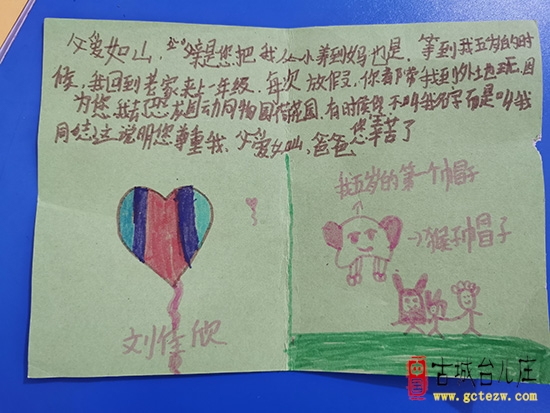 父爱如山,爸爸是您把我从小养到大妈也是,等到我五岁的时
候,我回到老家上一年级,每次放假,你都带我到外土地玩,因
为您,我去恐龙园动物园,有时候您不叫我名字而是叫我
同志,这说明您尊重我,父爱如山,爸爸您辛苦了
我五岁的第一个帽子
→猴子帽子
刘佳欣
古城台儿庄
www.gctezw.com